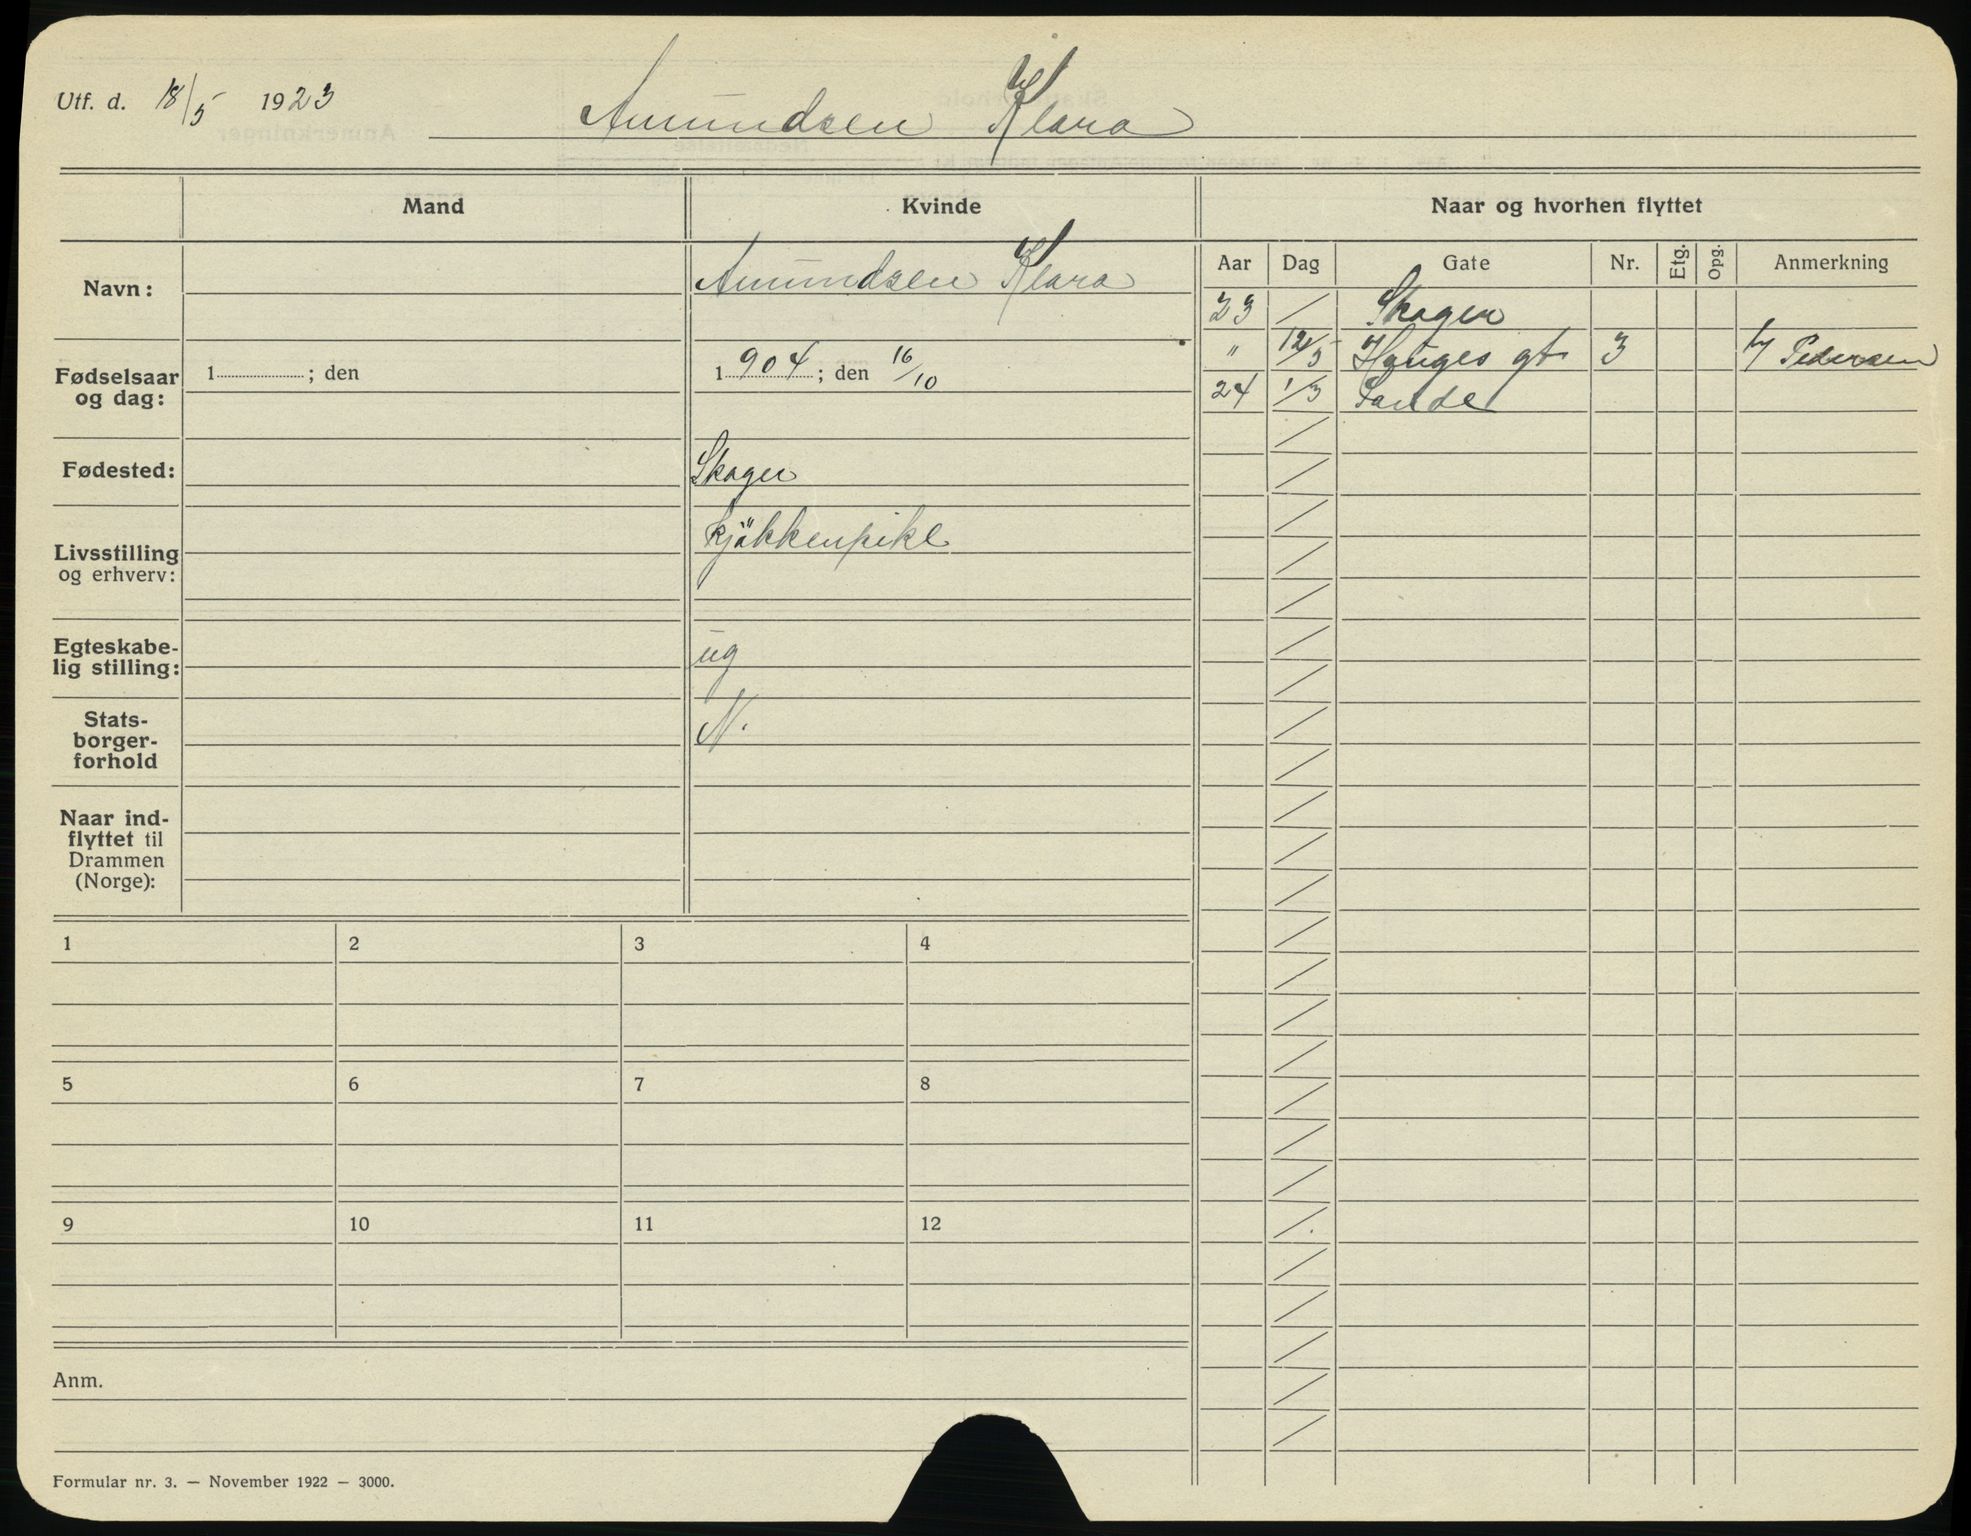 Utf. d. 18/5 1923 Amundsen Klara
Mand Kvinde Naar og hvorhen flyttet
Aar Dag Gate Nr. Etg. Opg. Anmerkning
Navn: Amundsen Klara
Fødselsaar og dag: 1 ; den 1904 ; den 16/10
Fødested: Skoger
Livsstilling og erhverv: kjökkenpike
Egteskabe-
lig stilling: ug
Stats-
borger-
forhold N.
Naar ind-
flyttet til
Drammen
(Norge):
23 / Skoger
" 12/5 Hauges gt 3 h/ Pedersen
24 1/3 Sande
1 2 3 4
5 6 7 8
9 10 11 12
Anm.
Formular nr. 3. — November 1922 — 3000.